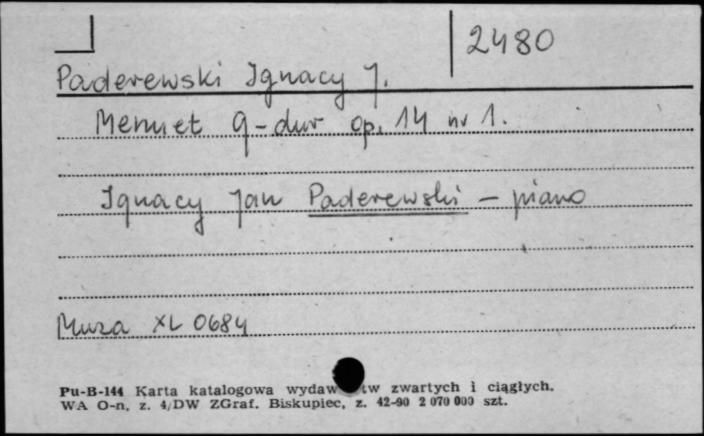 2480
Paderewski Ignacy J.
Menuet G-dur op. 14 nr 1.
Ignacy Jan Paderewski – piano
Muza XL 0684
Pu-B-144 Karta katalogowa wydaw tw zwartych i ciągłych.
WA O-n, z. 4/DW ZGraf. Biskupiec, z. 42-90 2 070 000 szt.